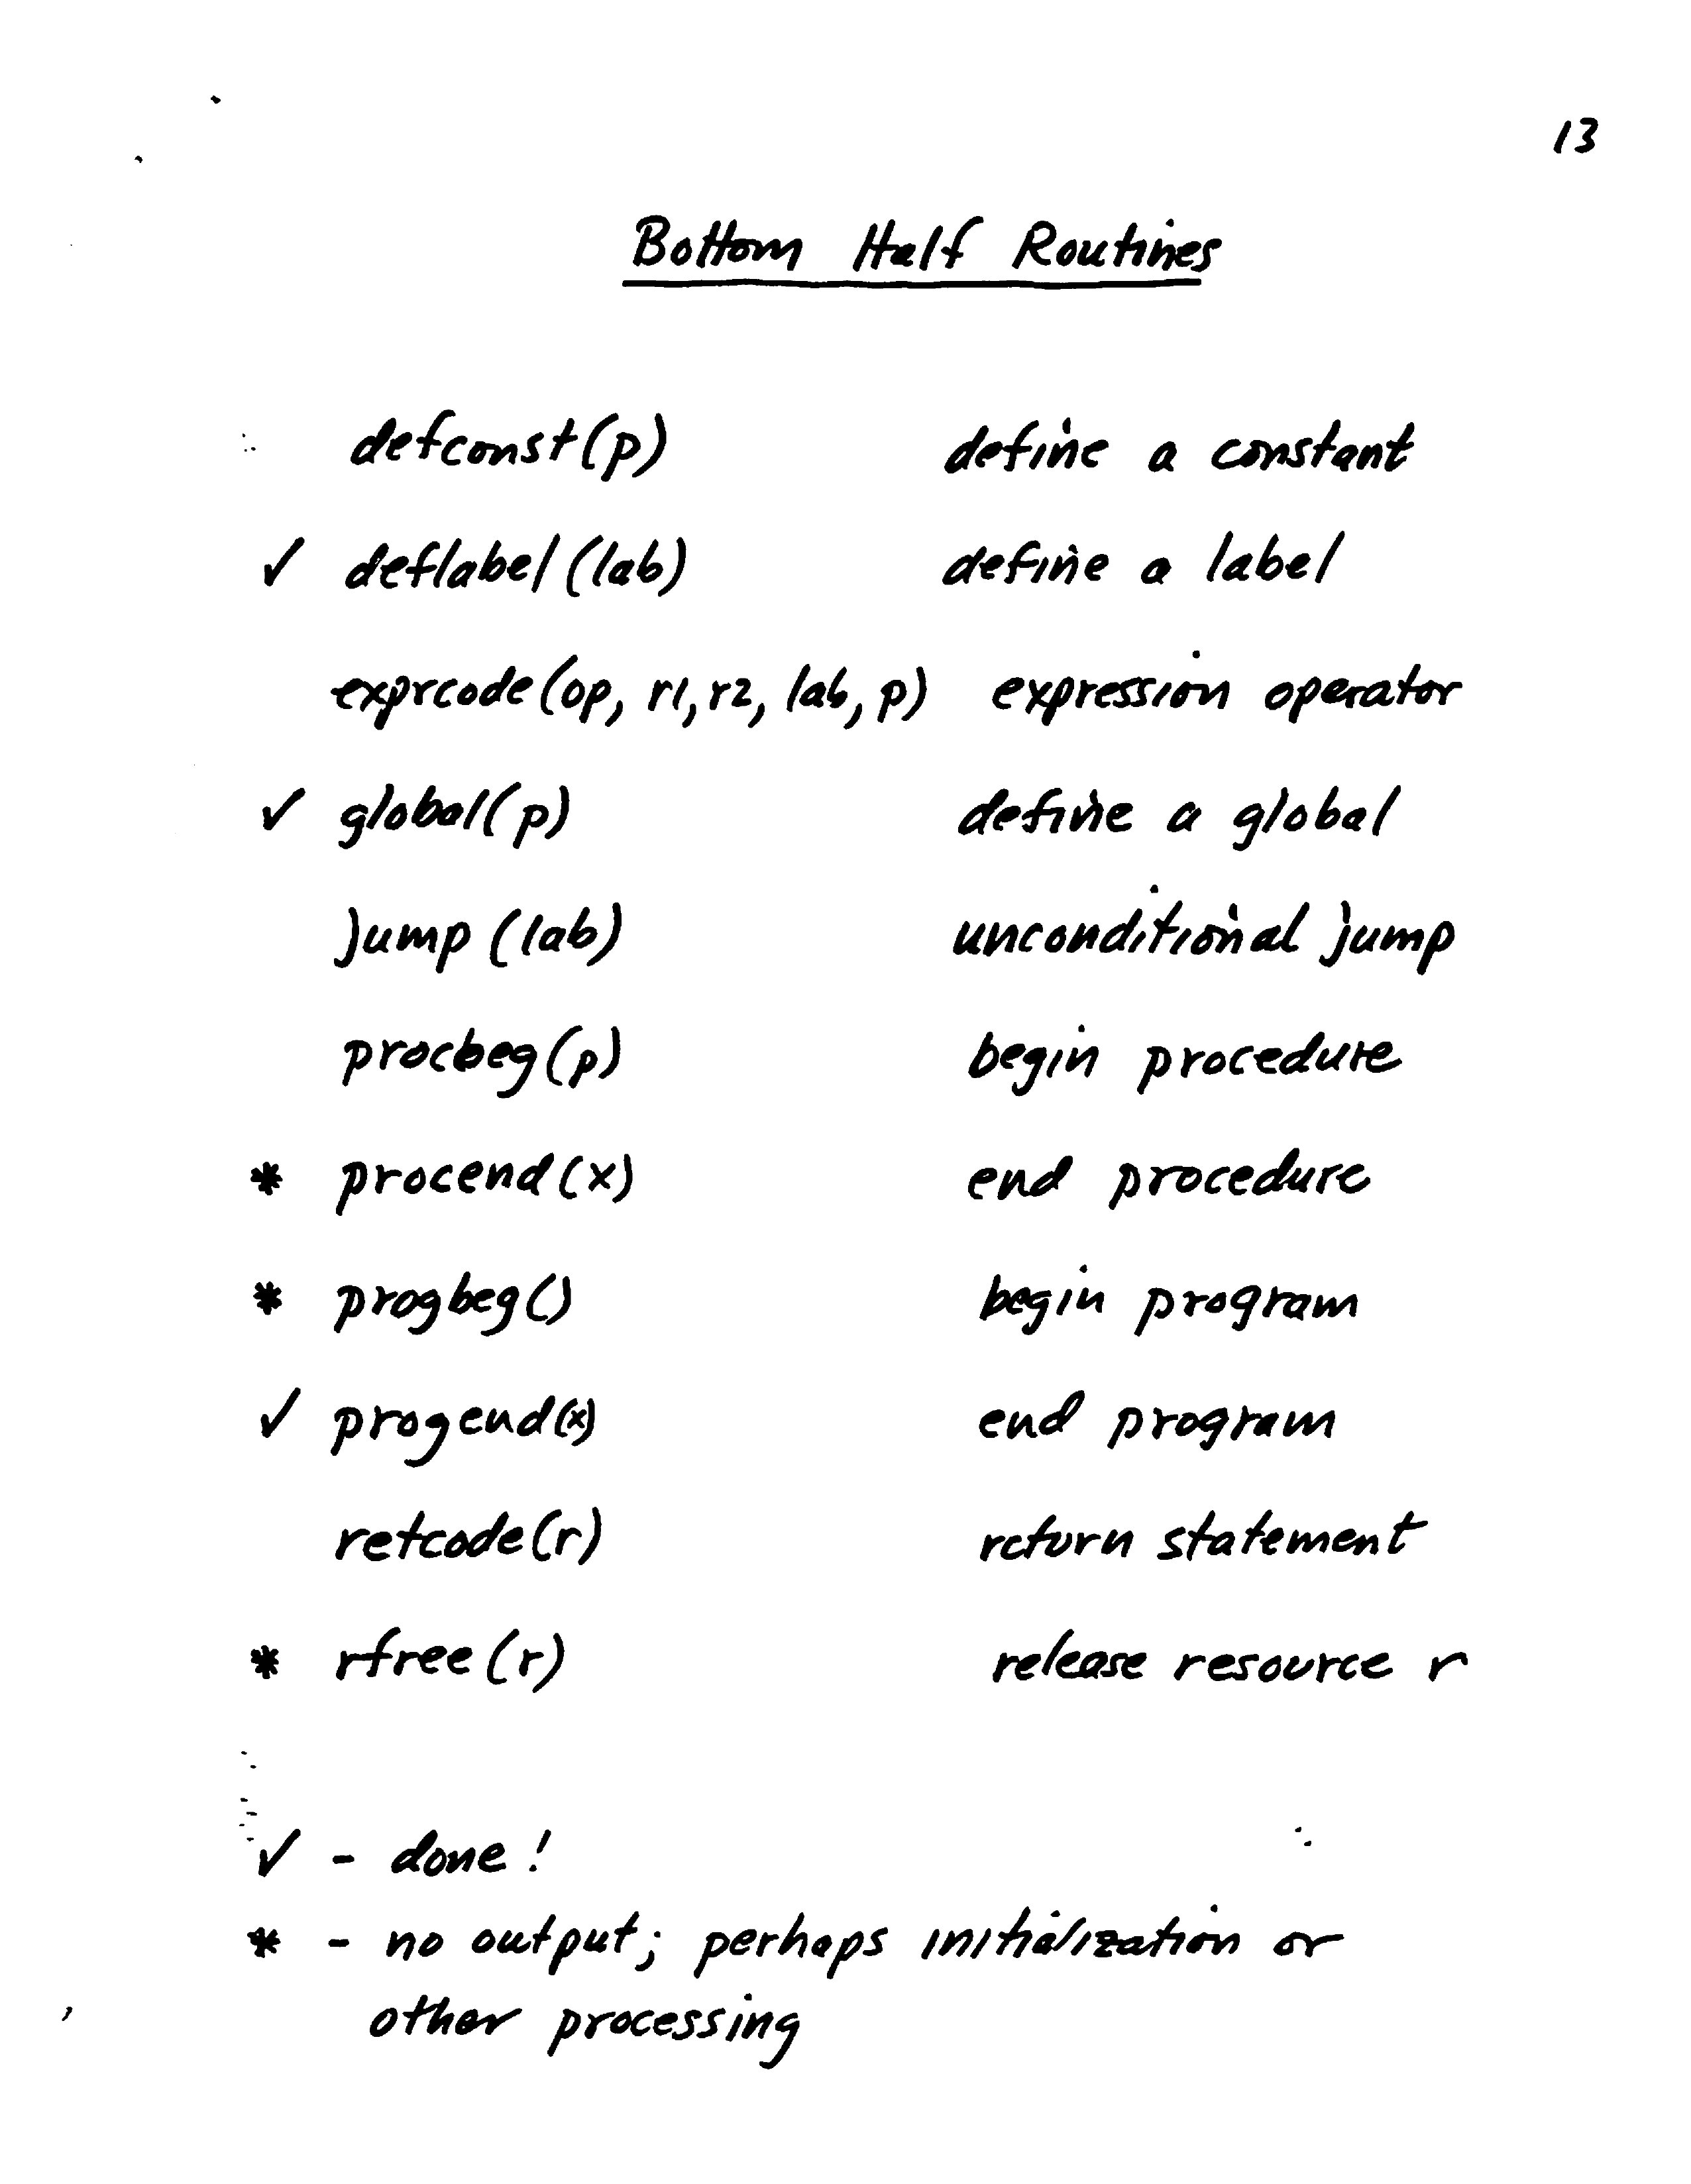 13
Bottom Half Routines
defconst(p) define a constant
✓ deflabel(lab) define a label
exprcode(op, r1, r2, lab, p) expression operator
✓ global(p) define a global
jump(lab) unconditional jump
procbeg(p) begin procedure
* procend(x) end procedure
* progbeg() begin program
✓ progend(x) end program
retcode(r) return statement
* rfree(r) release resource r
✓ - done!
* - no output; perhaps initialization or
other processing